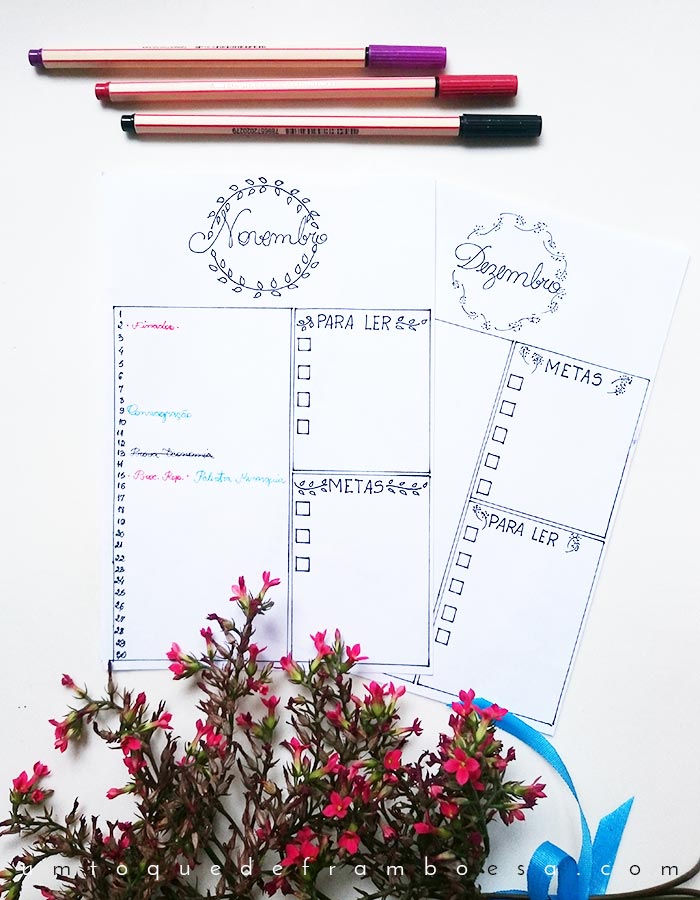 789657202027
Novembro
Dezembro
1
2 · Finados ·
3
4
5
6
7
8
9 Consagração
10
11
12
13 Prova Economia
14
15 · Proc. Rep. · Palestra
16
17
18
19
20
21
22
23
24
25
26
27
28
29
30
PARA LER
METAS
METAS
PARA LER
umtoquedeframboesa.com